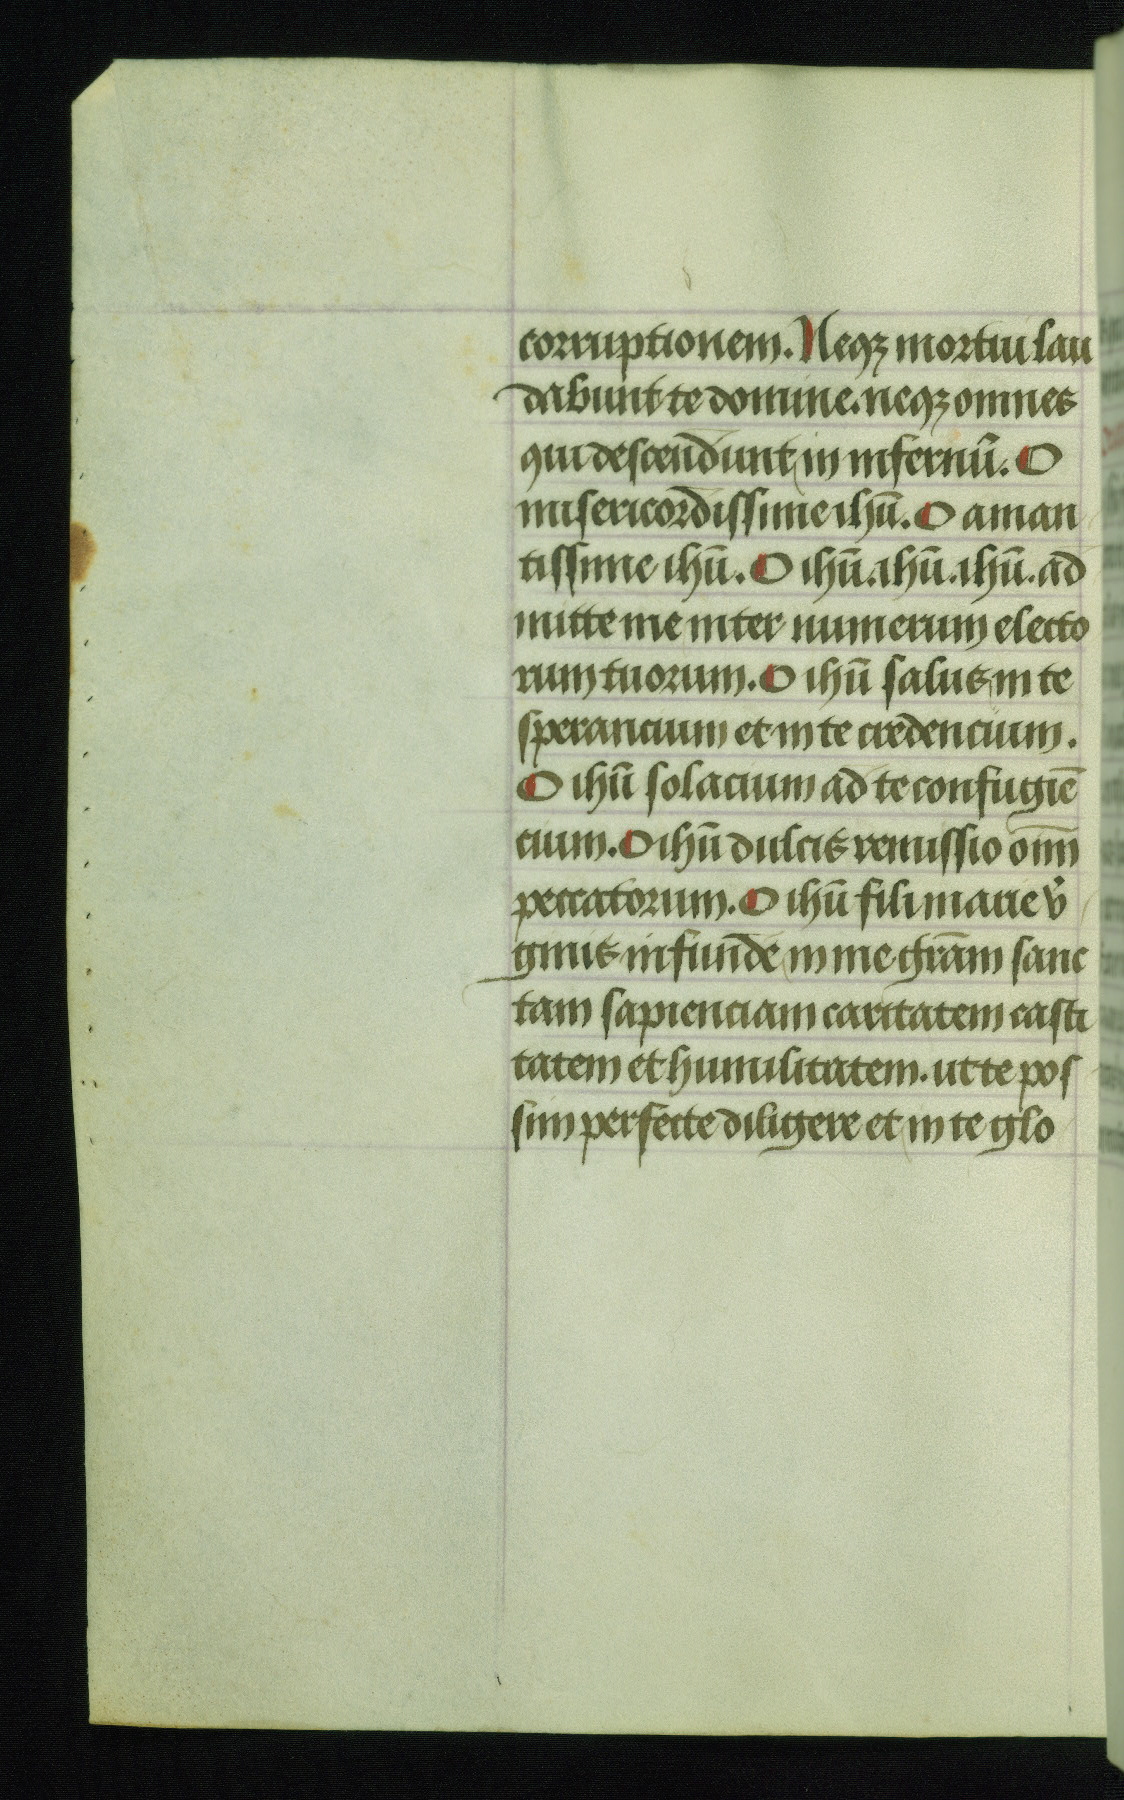 corruptionem. Neqꝫ mortui lau
dabunt te domine. neqꝫ omnes
qui descendunt in infernū. O
misericordissime ihū. O aman
tissime ihū. O ihū. ihū. ihū. ad
mitte me inter numerum electo
rum tuorum. O ihū salus in te
sperancium et in te credencium.
O ihū solacium ad te confugiē
cium. O ihū dulcis remissio oīm
peccatorum. O ihū fili marie v̾
ginis infunde in me grām sanc
tam sapienciam caritatem casti
tatem et humilitatem. ut te pos
sim perfecte diligere et in te glo